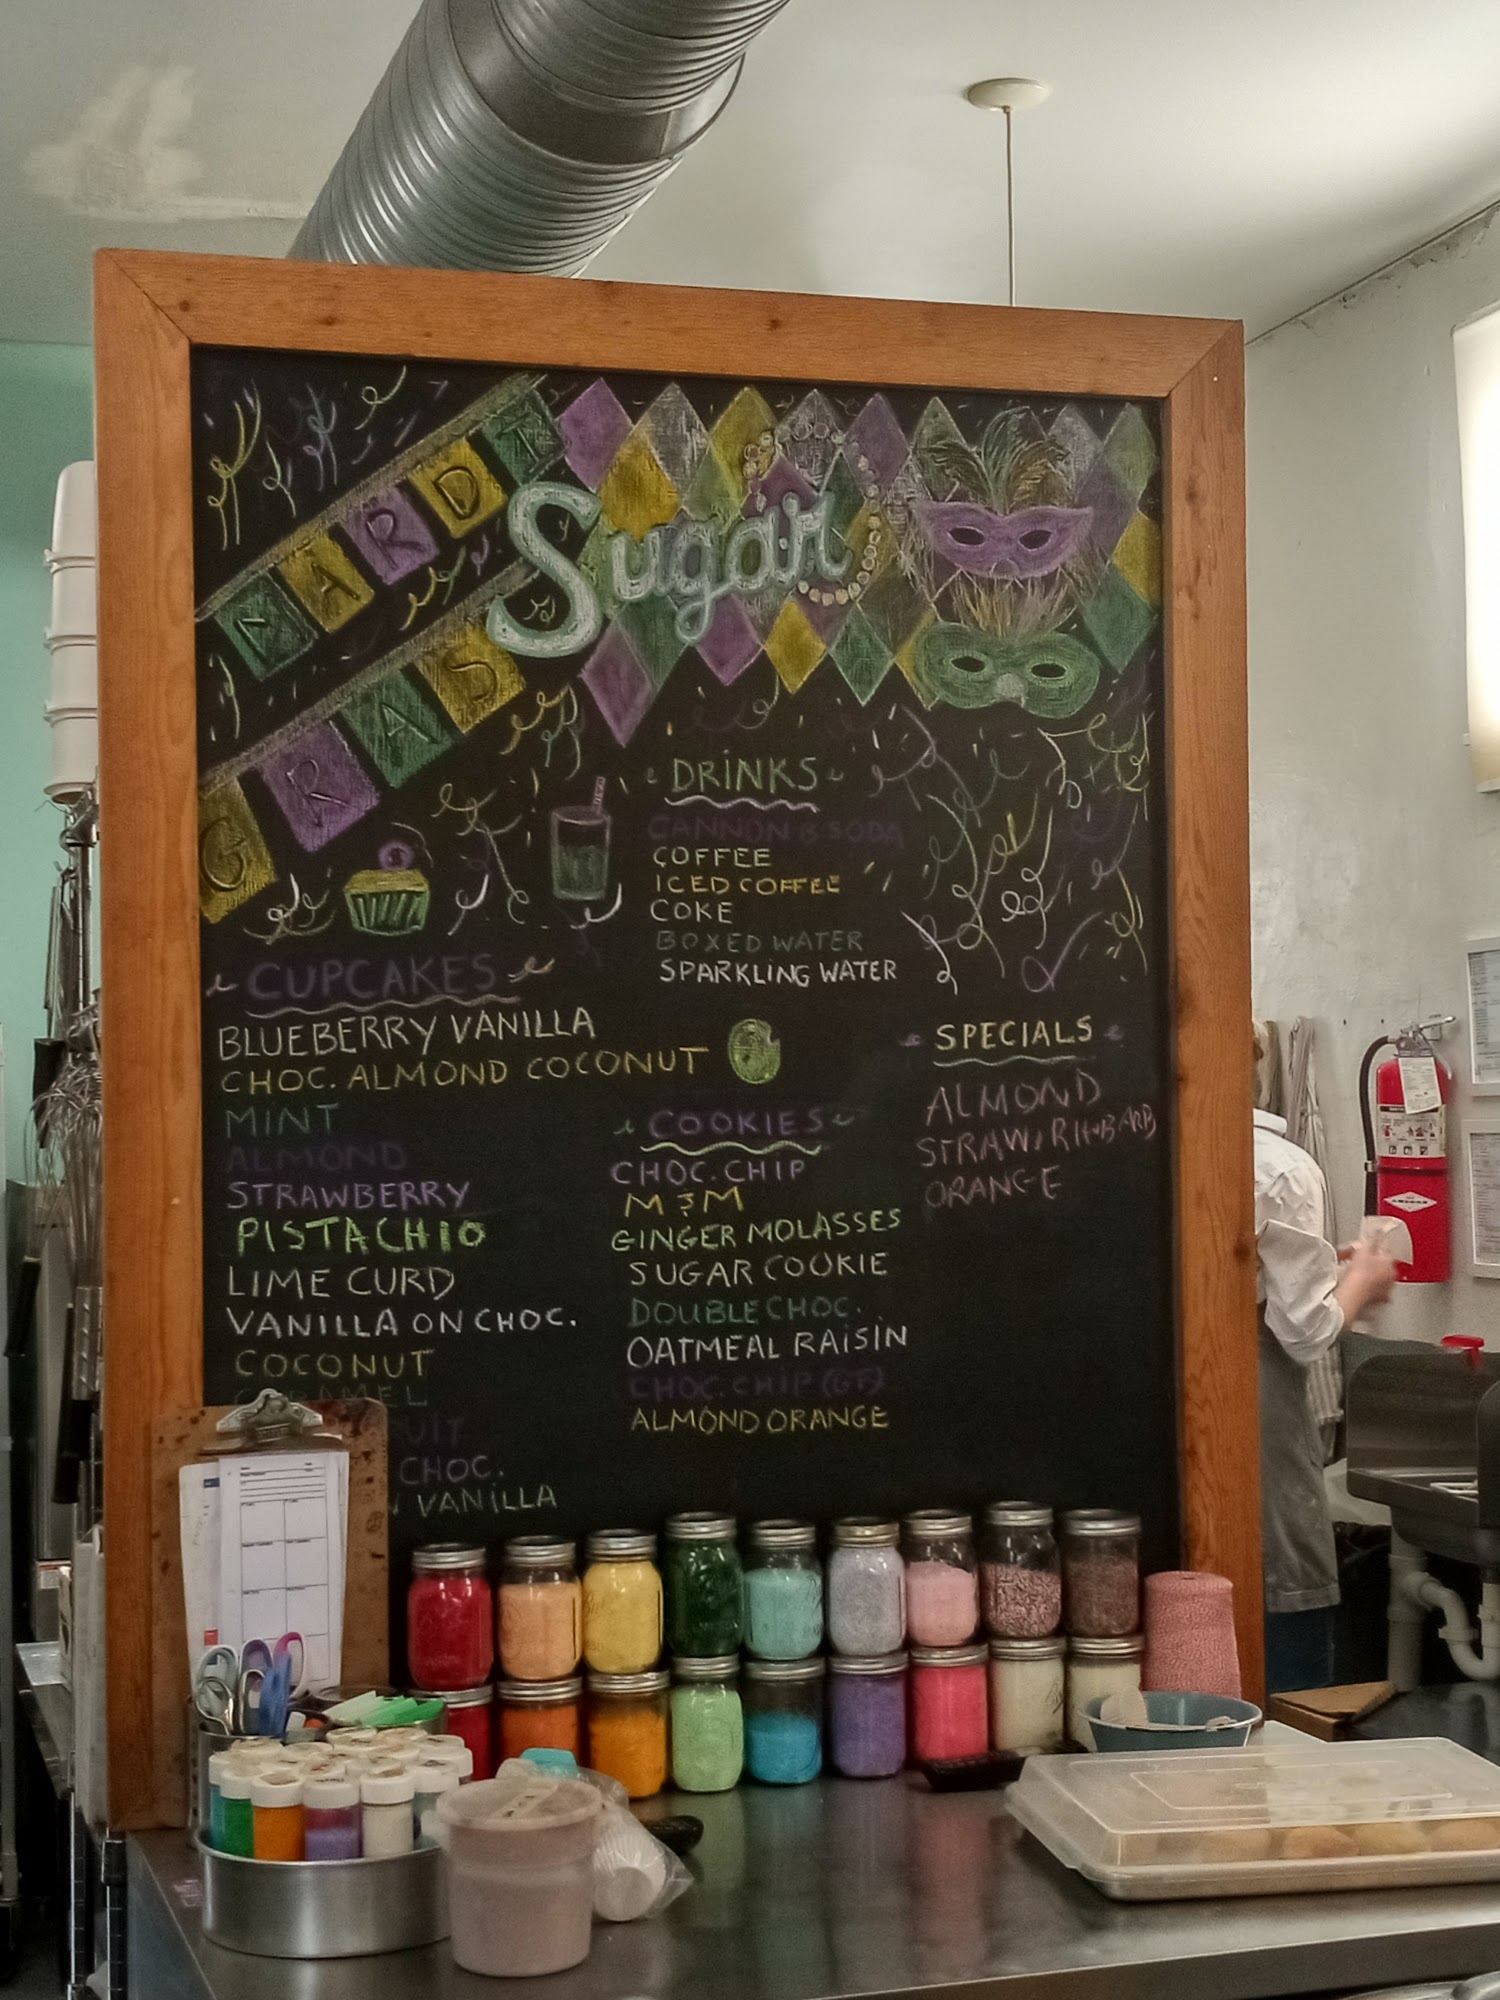 MARDI
GRAS
Sugar
DRINKS
CANNON B SODA
COFFEE
ICED COFFEE
COKE
BOXED WATER
SPARKLING WATER
CUPCAKES
BLUEBERRY VANILLA
CHOC. ALMOND COCONUT
MINT
ALMOND
STRAWBERRY
PISTACHIO
LIME CURD
VANILLA ON CHOC.
COCONUT
CHOC.
VANILLA
COOKIES
CHOC. CHIP
M & M
GINGER MOLASSES
SUGAR COOKIE
DOUBLE CHOC.
OATMEAL RAISIN
CHOC. CHIP (GF)
ALMOND ORANGE
SPECIALS
ALMOND
STRAW. RHUBARB
ORANGE